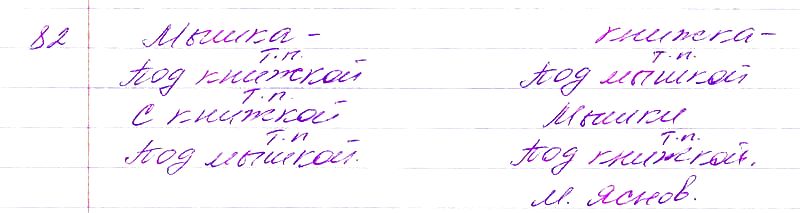 82
Мышка –
т.п.
Под книжкой
т.п.
С книжкой
т.п
Под мышкой.
книжка –
т.п.
Под мышкой
Мышки
т.п.
Под книжкой.
М. Яснов.